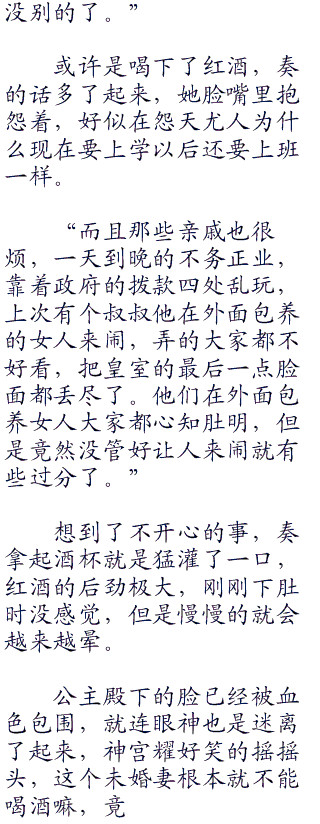 没别的了。”
或许是喝下了红酒，奏
的话多了起来，她脸嘴里抱
怨着，好似在怨天尤人为什
么现在要上学以后还要上班
一样。
“而且那些亲戚也很
烦，一天到晚的不务正业，
靠着政府的拨款四处乱玩，
上次有个叔叔他在外面包养
的女人来闹，弄的大家都不
好看，把皇室的最后一点脸
面都丢尽了。他们在外面包
养女人大家都心知肚明，但
是竟然没管好让人来闹就有
些过分了。”
想到了不开心的事，奏
拿起酒杯就是猛灌了一口，
红酒的后劲极大，刚刚下肚
时没感觉，但是慢慢的就会
越来越晕。
公主殿下的脸已经被血
色包围，就连眼神也是迷离
了起来，神宫耀好笑的摇摇
头，这个未婚妻根本就不能
喝酒嘛，竟